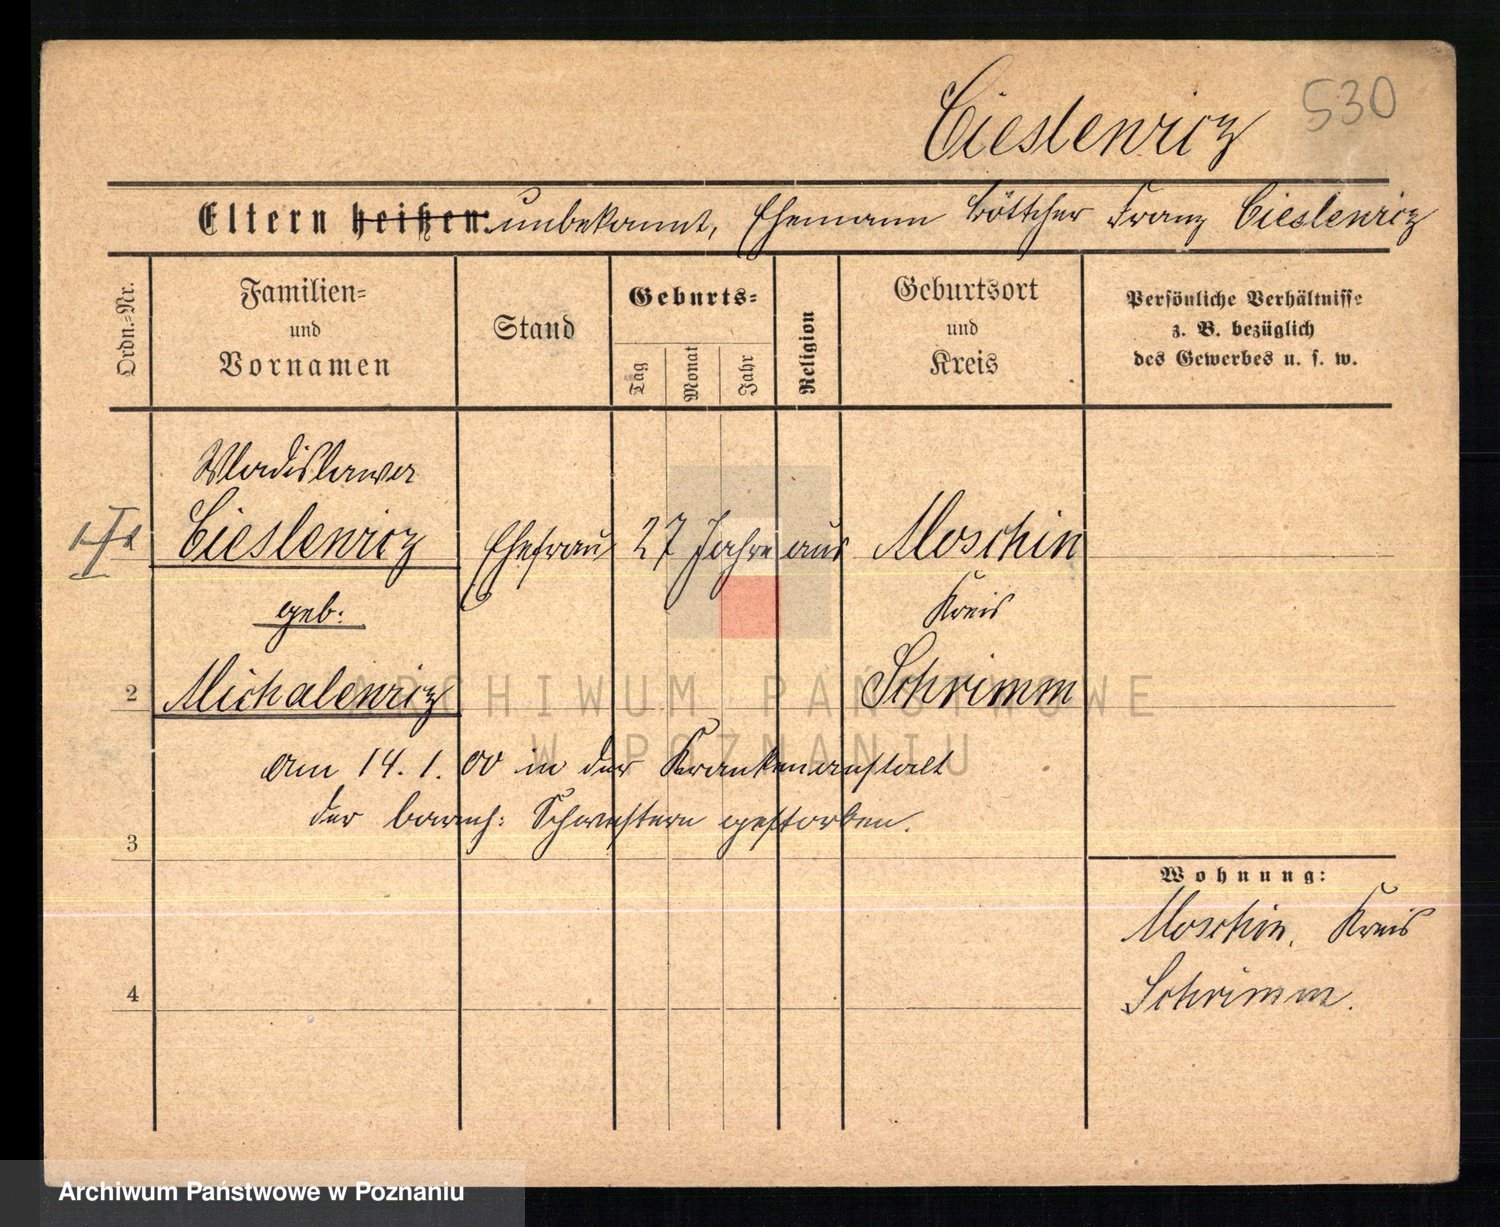 530
Cieslewicz
Eltern heißen: unbekannt, Ehemann Böttcher Franz Cieslewicz
Ordn.-Nr.
Familien-
und
Vornamen
Stand
Geburts-
Tag
Monat
Jahr
Religion
Geburtsort
und
Kreis
Persönliche Verhältnisse
z. B. bezüglich
des Gewerbes u. s. w.
Wladislawa
Cieslewicz Ehefrau 27 Jahre aus Moschin
geb: Kreis
2 Michalewicz Schrimm
am 14. 1. 00 in der Krankenanstalt
der barmh: Schwestern gestorben.
3
Wohnung:
Moschin, Kreis
Schrimm.
4
ARCHIWUM PAŃSTWOWE
W POZNANIU
Archiwum Państwowe w Poznaniu